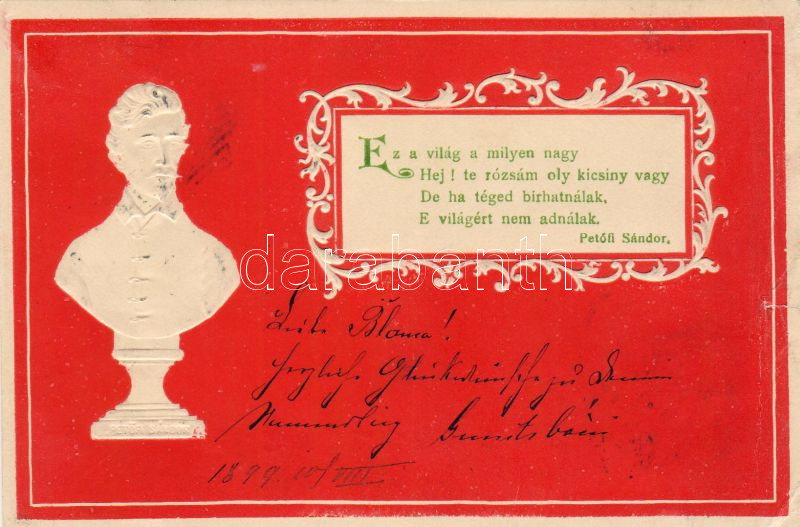 Ez a világ a milyen nagy
Hej! te rózsám oly kicsiny vagy
De ha téged birhatnálak,
E világért nem adnálak.
Petőfi Sándor.
darabanth
Liebe Blanca!
herzliche Glückwünsche zu Deinem
1899 10/VIII
PETŐFI SÁNDOR